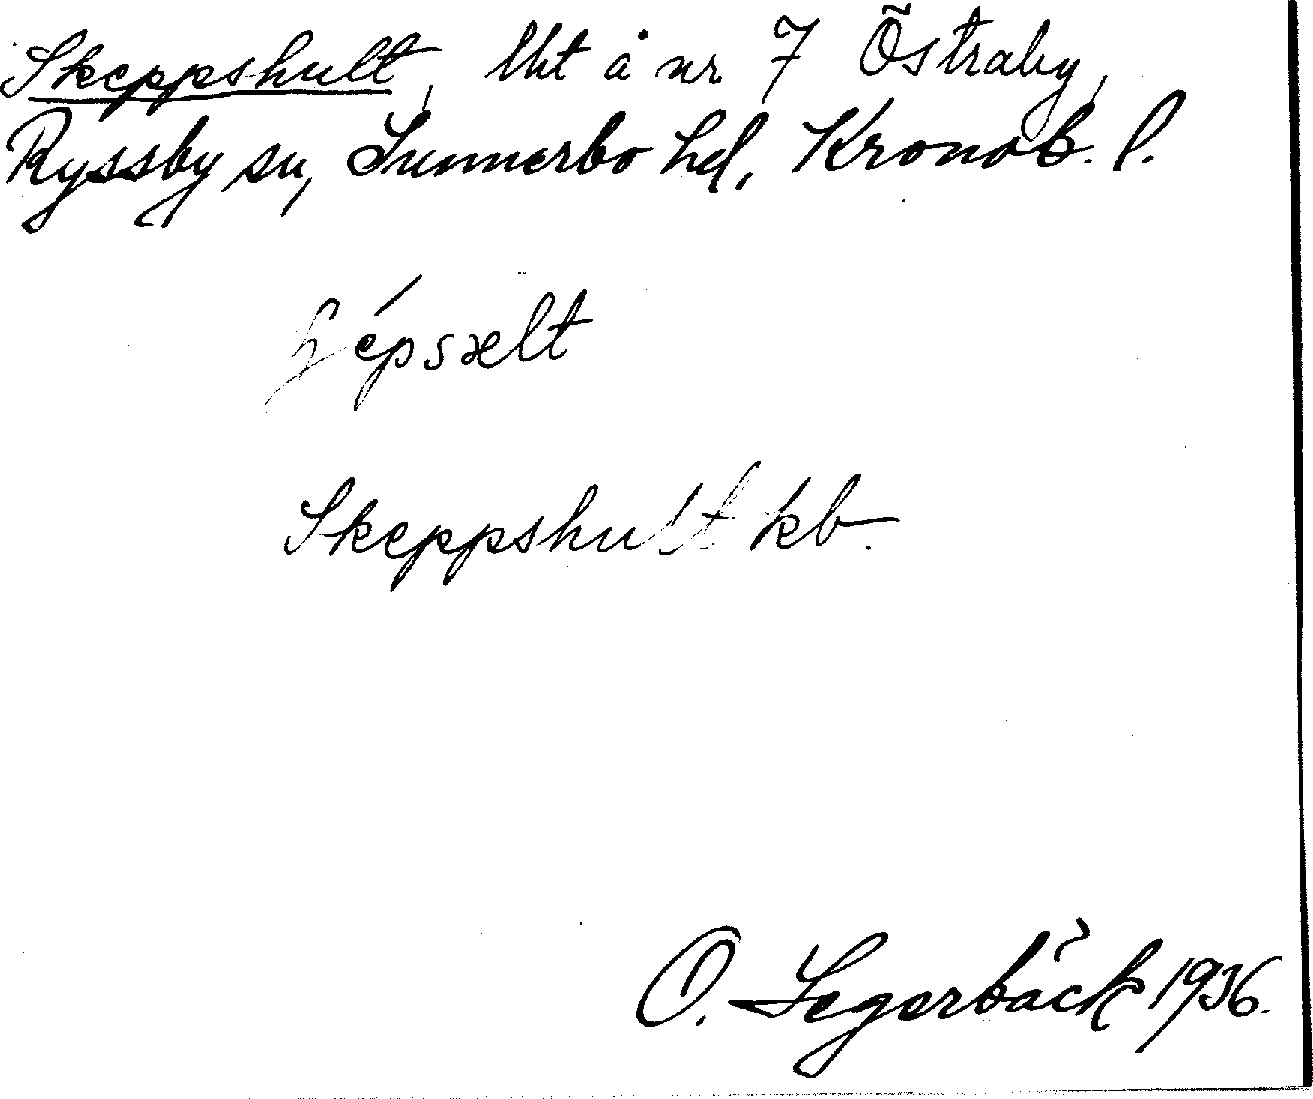 Skeppshult, lht å nr 7 Östraby,
Ryssby sn, Sunnerbo hd, Kronob. l.
Skeppshult kb.
O. Segerbäck 1936.